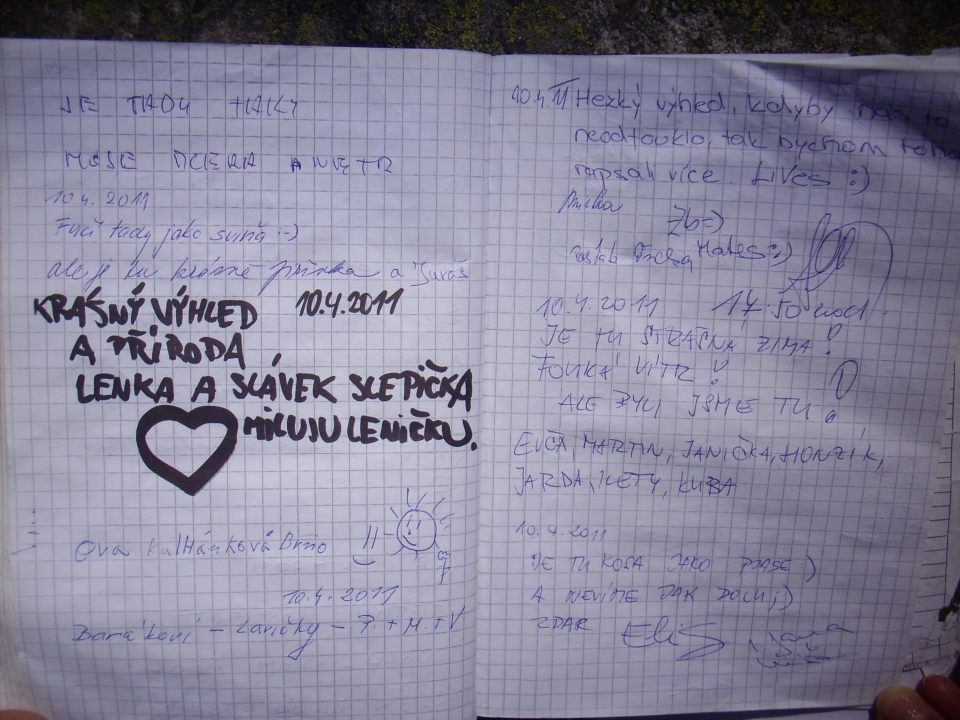 JE TADY TAKY
MOJE DCERA A VÍTR
10.4. 2011
Fučí tady jako sviňa :-)
ale je tu krásně a
KRÁSNÝ VÝHLED 10.4.2011
A PŘÍRODA,
LENKA A SLÁVEK SLEPIČKA
MILUJU LENIČKU.
Eva Kulhánková Brno
10.4.2011
Baňákovi - Lavičky - P. + M. + V
10.4.11 Hezký výhled, kdyby nás to
neodfouklo, tak bychom toho
napsali více. LiVes :)
Miška
Zb=)
Mates :)
10.4.2011 17.50 hod.
JE TU STRAŠNÁ ZIMA!
FOUKÁ VÍTR!
ALE BYLI JSME TU!
EVČA, MARTIN, JANIČKA, HONZÍK,
JARDA, KETY, KUBA
10.4.2011
JE TU KOSA JAKO PRASE :)
A NEVÍME JAK DOLU ;)
ZDAR EliS